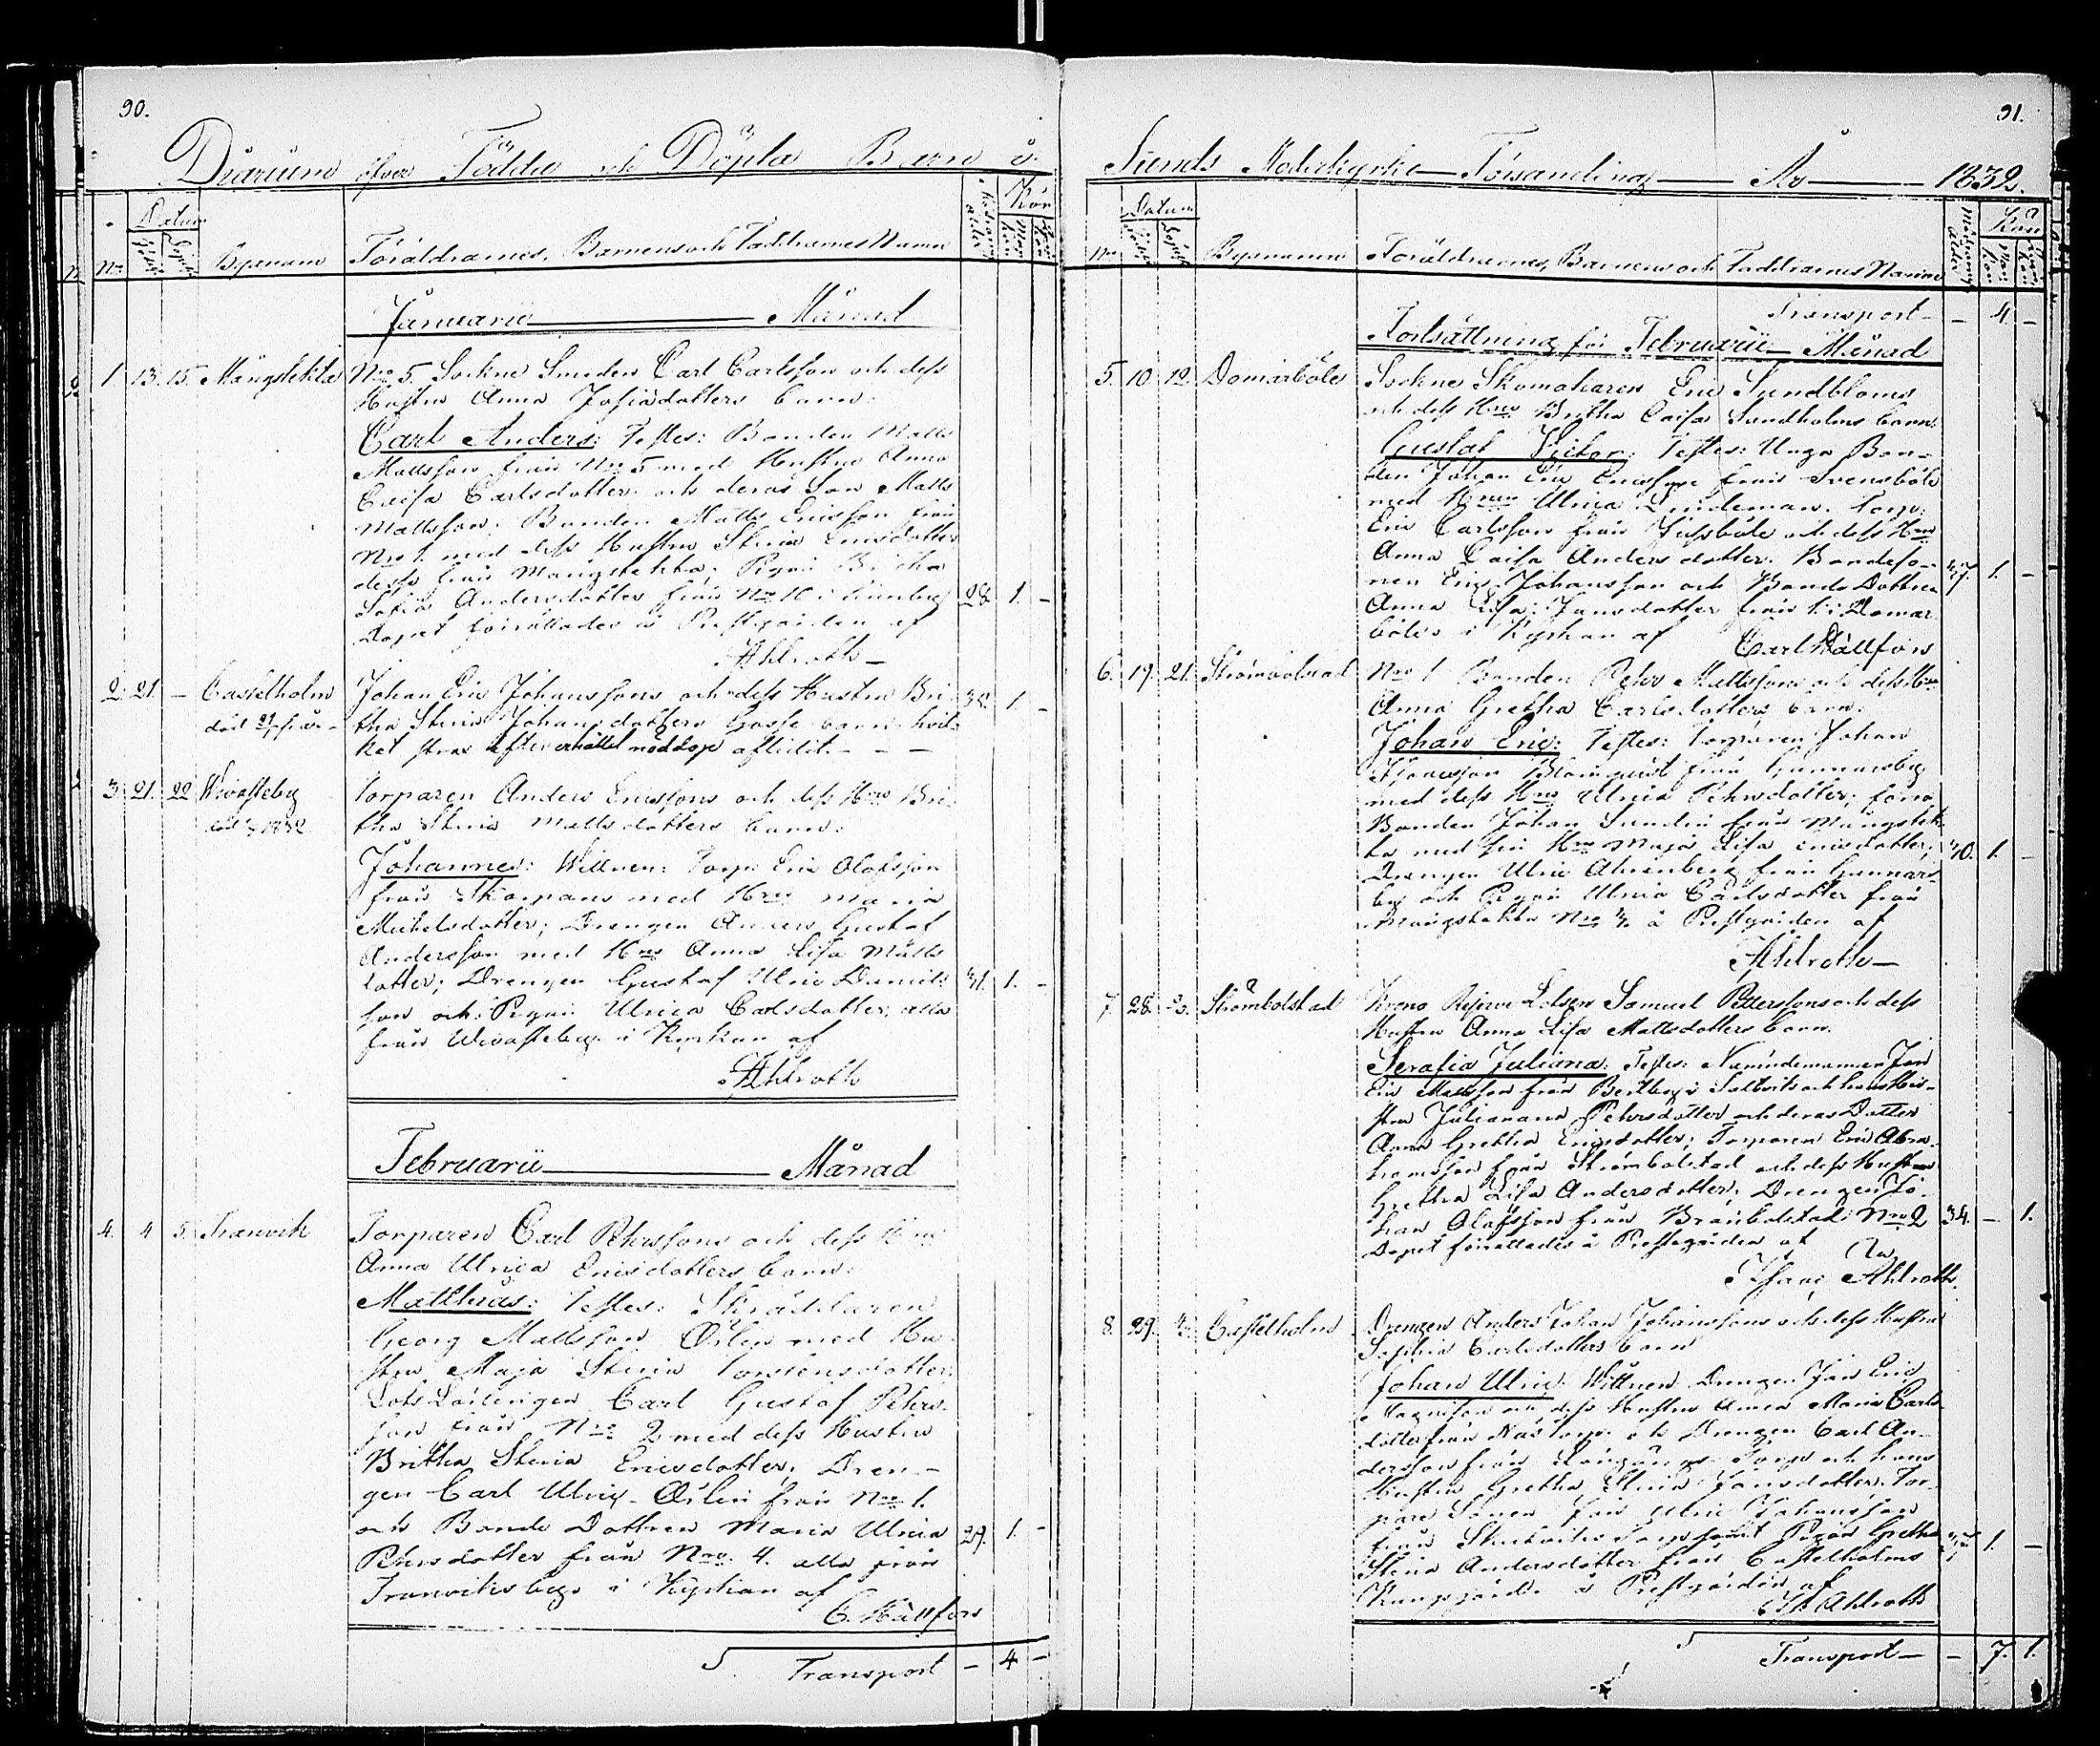 90.
Diarium öfver Födde och Döpta Barn i
Datum
Kön
No
Bynamn
Föräldrarnes, Barnens och Faddrarnes Namn
Januarii Månad
1. 13. 15. Mångstekta No 5. Sockne Smeden Carl Carlsson och dess
Hustru Anna Josiædotters barn:
Carl Anders: Testes: Bonden Matts
Mattsson från No 5 med Hustru Anna
Caisa Carlsdotter och deras Son Matts
Mattsson; Bonden Matts Ericsson från
No 1. med dess Hustru Stina Ericsdotter
desse från Mångstekta; Pigan Britha
Sofia Andersdotter från No 10 i 28. 1. -
Dopet förrättades å Prestgården af
Ahlroth
2. 21. - Castelholm Johan Eric Johanssons och dess Hustru Bri- 32. 1. -
tha Stina Johansdotters Gosse barn hvil-
ket strax efter erhållet nöddop aflidit. - - -
3. 21. 22. Wivasteby Torparen Anders Ericssons och dess Hru Bri-
tha Stina Mattsdotters barn:
Johannes: Wittnen: Torp. Eric Olofsson
från Skarpans med Hru Maria
Michelsdotter; Drengen Anders Gustaf
Andersson med Hru Anna Lisa Matts
dotter; Drengen Gustaf Ulric Daniels 31. 1. -
son och Pigan Ulrica Carlsdotter, alla
från Wivasteby i Kyrkan af
Ahlroth
Februarii Månad
4. 4 5. Tranvik Torparen Carl Pehrssons och dess Hru
Anna Ulrica Ericsdotters barn:
Matthias: Testes: Skräddaren
Georg Mattsson Öslin med Hu-
stru Maja Stina Torstensdotter;
Lots Lärlingen Carl Gustaf Pehrs-
son från No 2 med dess Hustru
Britha Stina Ericsdotter; Dren-
gen Carl Ulric Öslin från No 1.
och Bonde Dottren Maria Ulrica 29. 1. -
Pehrsdotter från No 4. alla från
Tranviks by i Kyrkan af
C. Hällfors
Transport - 4 -
91.
Sunds Moderkyrko Församling År 1832.
Datum
Kön
No
Bynamn
Föräldrarnes, Barnens och Faddrarnes Namn
Transport - 4 -
Fortsättning för Februarii Månad
5. 10. 12. Domarböle Sockne Skomakaren Eric Sundbloms
och dess Hrus Britha Caisa Sundholms barn:
Gustaf Victor: Testes: Unga Bon-
den Johan Eric Ericsson från Svensböle
med Hrun Ulrica Lindeman. Torp.
Eric Carlsson från och dess Hru
Anna Caisa Andersdotter. Bondeso-
nen Eric Johansson och Bonde Dottren 1. -
Anna Lisa Jansdotter från 1. i Domar
böle i Kyrkan af
Carl Hällfors
6. 19. 21. Strömbolstad No 1 Bonden Pehr Mattssons och dess Hru
Anna Gretha Carlsdotters barn:
Johan Eric: Testes: Torparen Johan
Blomqvist från Gunnarsby
med dess Hru Ulrica Pehrsdotter; förra
Bonden Johan Sundin från Mångstek-
ta med sin Hru Maja Lisa Ericsdotter; 40. 1. -
Drengen Ulric Ahrenberg från Gunnars-
by och Pigan Ulrica Carlsdotter från
Mångstekta No 4 å Prestgården af
Ahlroth
7. 28. Strömbolstad Krono Reserve Lotsen Samuel Petterssons och dess
Hustru Anna Lisa Mattsdotters barn.
Serafia Juliana. Testes: Nämndemannen Jan
Eric Mattsson från Bertby i Saltvik och hans Hu-
stru Juliana Pehrsdotter och deras Dotter
Anna Gretha Ericsdotter; Torparen Eric Abra-
hamsson från Strömbolstad och dess Hustru
Gretha Lisa Andersdotter, Drengen Jo-
han Olofsson från Bränbolstad No 2 34. - 1.
Dopet förrättades å Prestgården af
Ahlroth
8. 29. Castelholm Drengen Anders Johan Johanssons och dess Hustru
Sophia Carlsdotters barn
Johan Ulric. Wittnen Drengen Jan Eric
och dess Hustru Anna Maria Carls-
dotter från Näs torp och Drengen Carl An-
dersson från torp och hans
Hustru Gretha Stina Jansdotter. Tor-
pare Sonen Jan Ulric Johansson
från torp samt Pigan Gretha 1. -
Stina Andersdotter från Castelholms
Kungsgård å Prestgården af
Ahlroth
Transport - 7. 1.